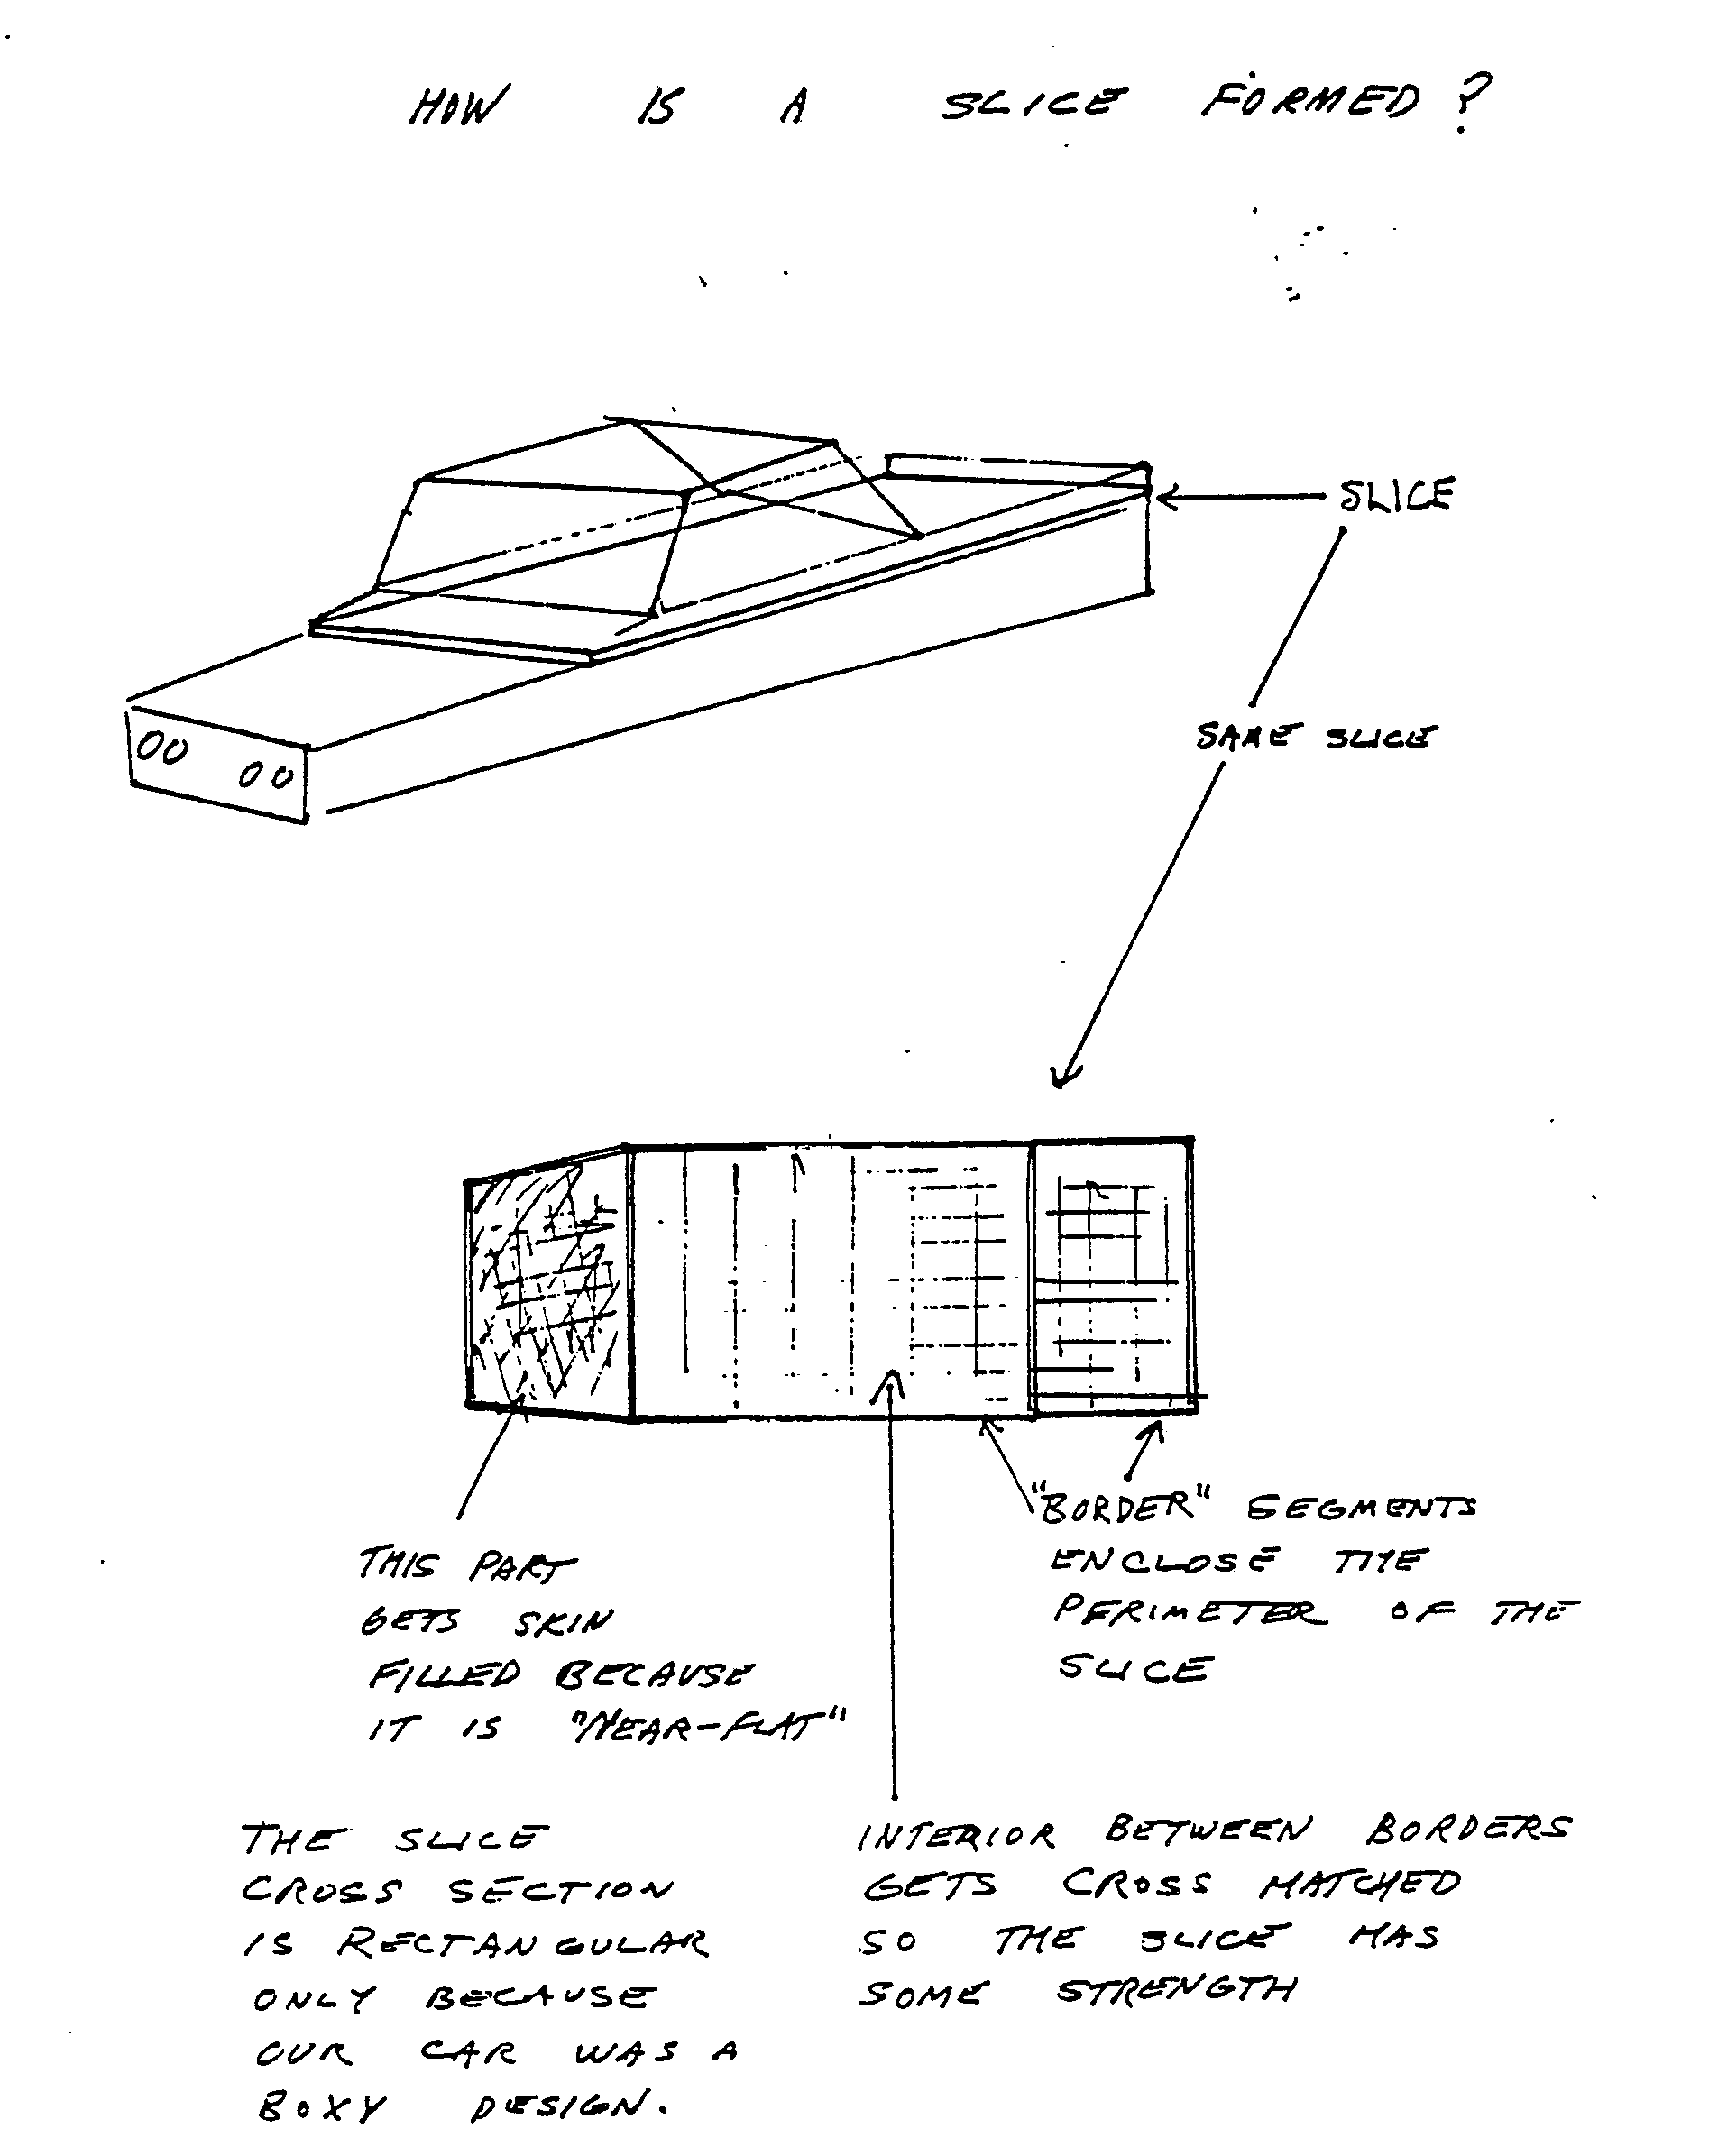 HOW IS A SLICE FORMED?
SLICE
SAME SLICE
"BORDER" SEGMENTS
ENCLOSE THE
PERIMETER OF THE
SLICE
THIS PART
GETS SKIN
FILLED BECAUSE
IT IS "NEAR-FLAT"
THE SLICE
CROSS SECTION
IS RECTANGULAR
ONLY BECAUSE
OUR CAR WAS A
BOXY DESIGN.
INTERIOR BETWEEN BORDERS
GETS CROSS MATCHED
SO THE SLICE HAS
SOME STRENGTH